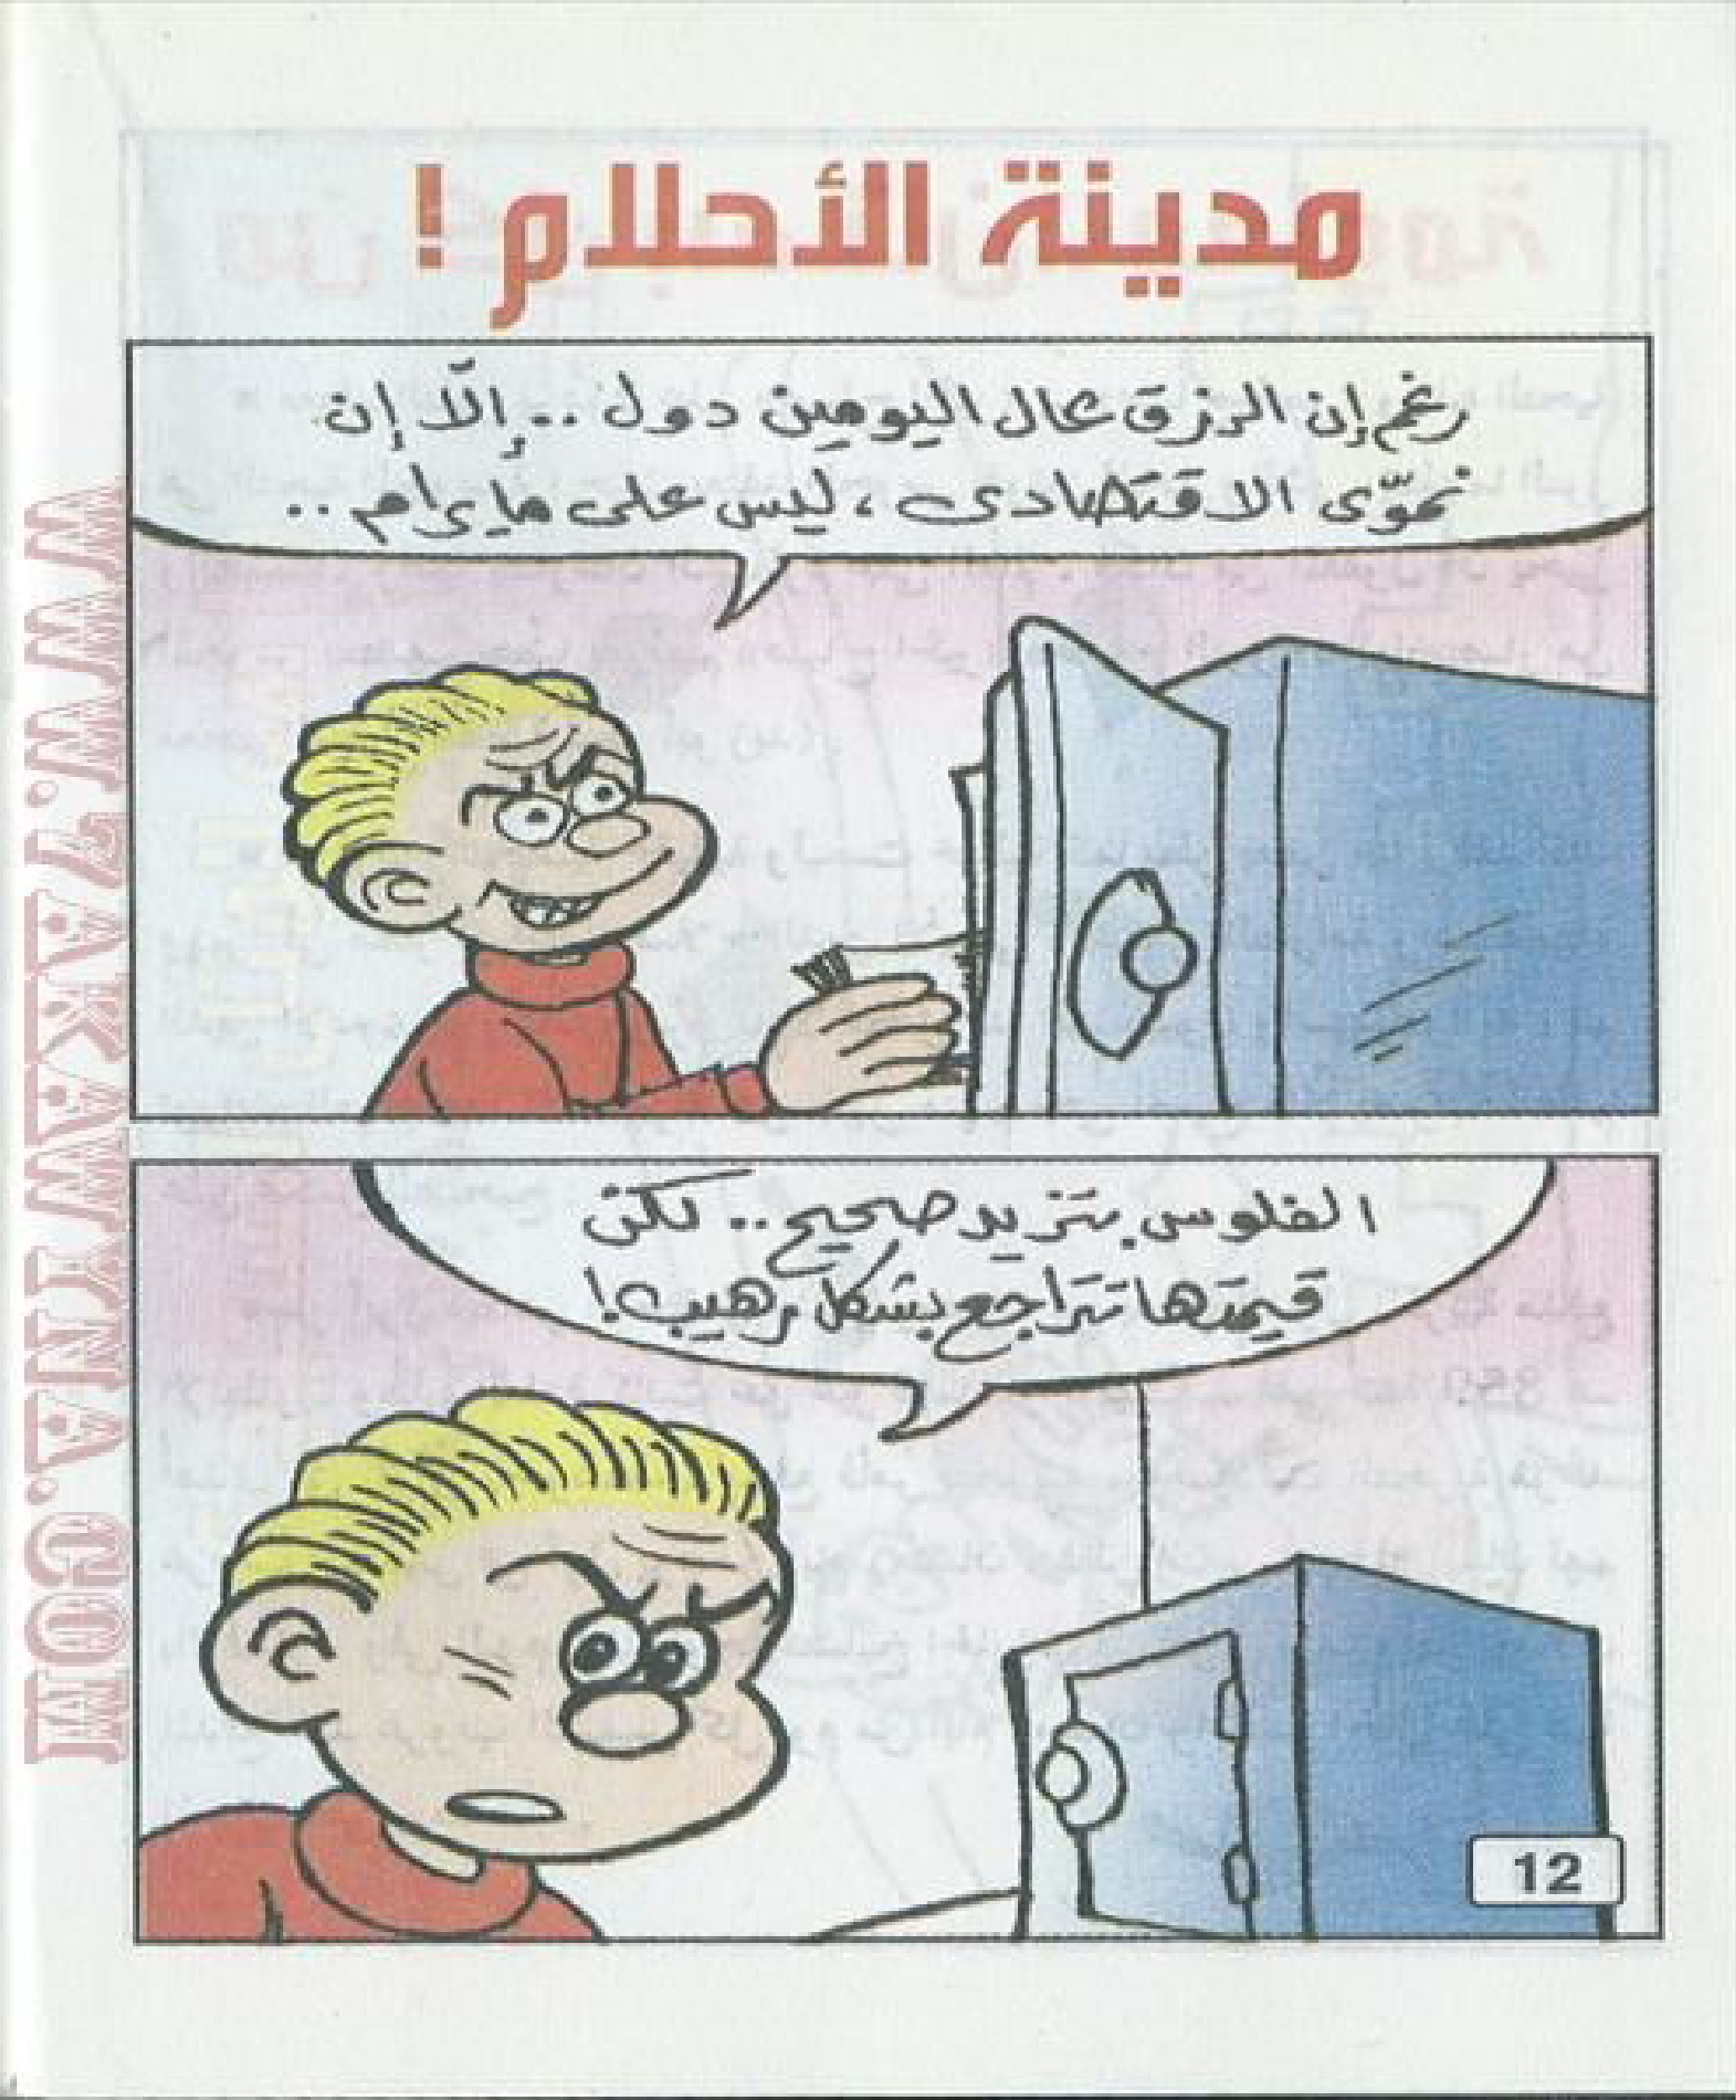 مدينة الأحلام !
رغم إن الرزق عال اليومين دول .. إلّا إن
نموّى الاقتصادى ، ليس على ما يرام ..
الفلوس بتزيد صحيح .. لكن
قيمتها تتراجع بشكل رهيب !
12
WWW.7AKAWINA.COM